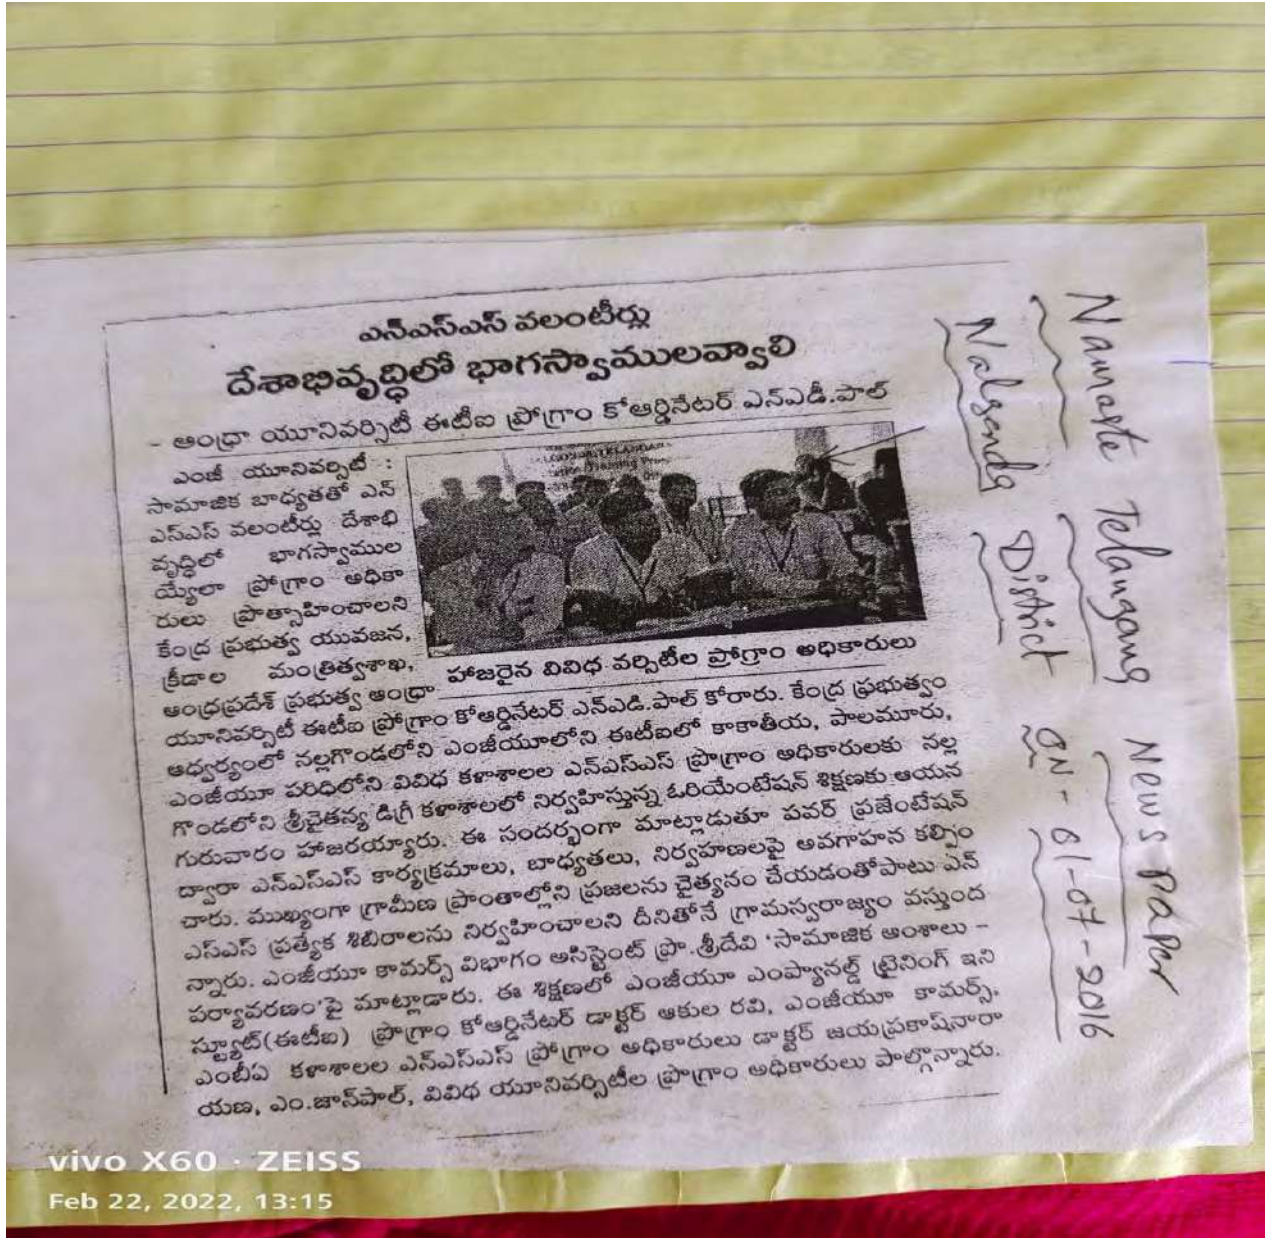 ఎన్ఎస్ఎస్ వలంటీర్లు
దేశాభివృద్ధిలో భాగస్వాములవ్వాలి
- ఆంధ్రా యూనివర్సిటీ ఈటీఐ ప్రోగ్రాం కోఆర్డినేటర్ ఎన్ఏడీ.పాల్
ఎంజీ యూనివర్సిటీ :
సామాజిక బాధ్యతతో ఎన్
ఎస్ఎస్ వలంటీర్లు దేశాభి
వృద్ధిలో భాగస్వాముల
య్యేలా ప్రోగ్రాం అధికా
రులు ప్రోత్సాహించాలని
కేంద్ర ప్రభుత్వ యువజన,
క్రీడాల మంత్రిత్వశాఖ,
హాజరైన వివిధ వర్సిటీల ప్రోగ్రాం అధికారులు
ఆంధ్రప్రదేశ్ ప్రభుత్వ ఆంధ్రా
యూనివర్సిటీ ఈటీఐ ప్రోగ్రాం కోఆర్డినేటర్ ఎన్ఏడి.పాల్ కోరారు. కేంద్ర ప్రభుత్వం
ఆధ్వర్యంలో నల్లగొండలోని ఎంజీయూలోని ఈటీఐలో కాకాతీయ, పాలమూరు,
ఎంజీయూ పరిధిలోని వివిధ కళాశాలల ఎన్ఎస్ఎస్ ప్రొగ్రాం అధికారులకు నల్ల
గొండలోని శ్రీచైతన్య డిగ్రీ కళాశాలలో నిర్వహిస్తున్న ఓరియేంటేషన్ శిక్షణకు ఆయన
గురువారం హాజరయ్యారు. ఈ సందర్భంగా మాట్లాడుతూ పవర్ ప్రజేంటేషన్
ద్వారా ఎన్ఎస్ఎస్ కార్యక్రమాలు, బాధ్యతలు, నిర్వహణలపై అవగాహన కల్పిం
చారు. ముఖ్యంగా గ్రామీణ ప్రాంతాల్లోని ప్రజలను చైత్యనం చేయడంతోపాటు ఎన్
ఎస్ఎస్ ప్రత్యేక శిబిరాలను నిర్వహించాలని దీనితోనే గ్రామస్వరాజ్యం వస్తుంద
న్నారు. ఎంజీయూ కామర్స్ విభాగం అసిస్టెంట్ ప్రొ.శ్రీదేవి 'సామాజిక అంశాలు -
పర్యావరణం'పై మాట్లాడారు. ఈ శిక్షణలో ఎంజీయూ ఎంప్యానల్డ్ ట్రైనింగ్ ఇని
స్ట్యూట్(ఈటీఐ) ప్రొగ్రాం కోఆర్డినేటర్ డాక్టర్ ఆకుల రవి, ఎంజీయూ కామర్స్,
ఎంబీఏ కళాశాలల ఎన్ఎస్ఎస్ ప్రోగ్రాం అధికారులు డాక్టర్ జయప్రకాష్‌నారా
యణ, ఎం.జాన్‌పాల్, వివిధ యూనివర్సిటీల ప్రొగ్రాం అధికారులు పాల్గొన్నారు.
Namaste Telangana News Paper
Nalgonda District on - 01-07-2016
vivo X60 · ZEISS
Feb 22, 2022, 13:15